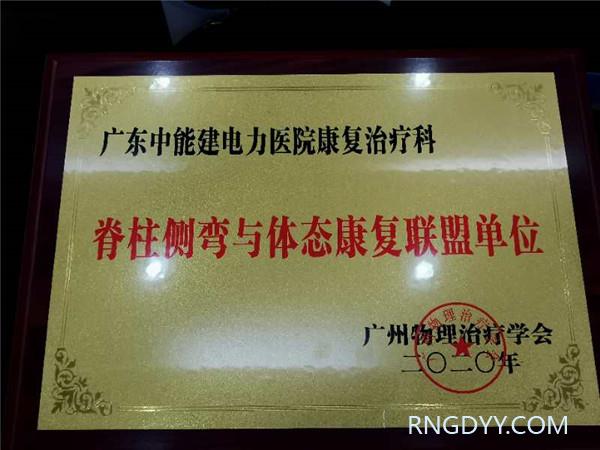 广东中能建电力医院康复治疗科
脊柱侧弯与体态康复联盟单位
广州物理治疗学会
二〇二〇年
RNGDYY.COM